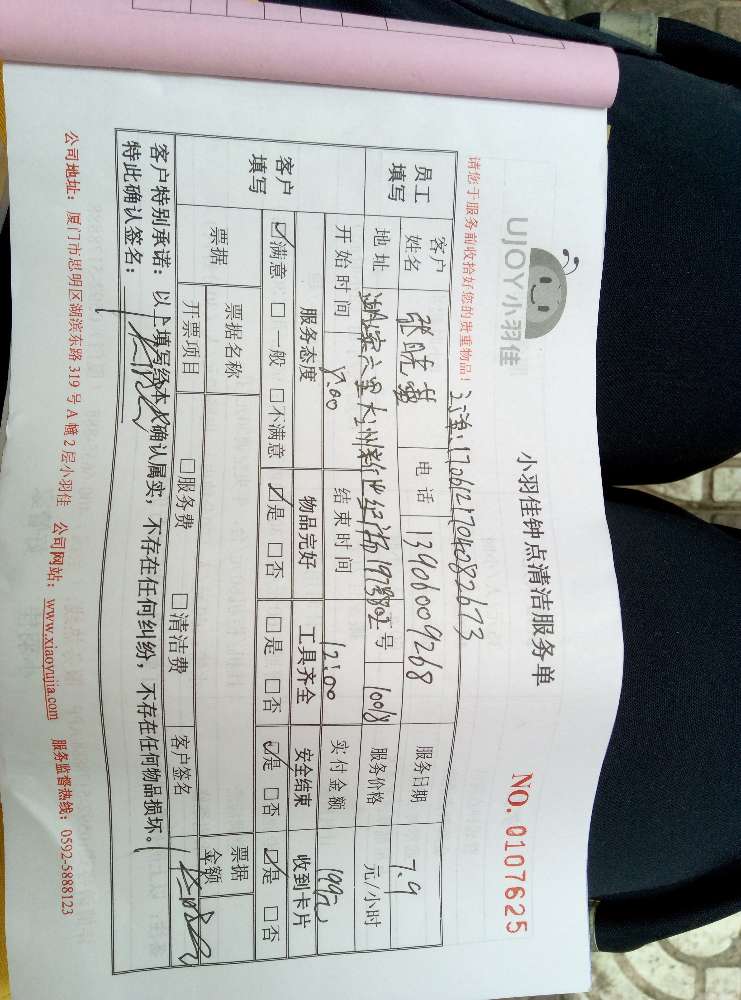 UJOY小羽佳
小羽佳钟点清洁服务单
NO. 0107625
请您于服务前收拾好您的贵重物品!
员工填写 客户姓名 电话 13906009268 服务日期 7.9
地址 号 服务价格 元/小时
开始时间 结束时间 12:00 实付金额
客户填写 服务态度 物品完好 工具齐全 安全结束 收到卡片
☑满意 □一般 □不满意 ☑是 □否 □是 □否 ☑是 □否 ☑是 □否
票据 票据名称 票据金额
开票项目 □服务费 □清洁费 客户签名
客户特别承诺:以上填写经本人确认属实,不存在任何纠纷,不存在任何物品损坏。
特此确认签名:
公司地址:厦门市思明区湖滨东路319号A幢2层小羽佳 公司网站:www.xiaoyujia.com 服务监督热线:0592-5888123